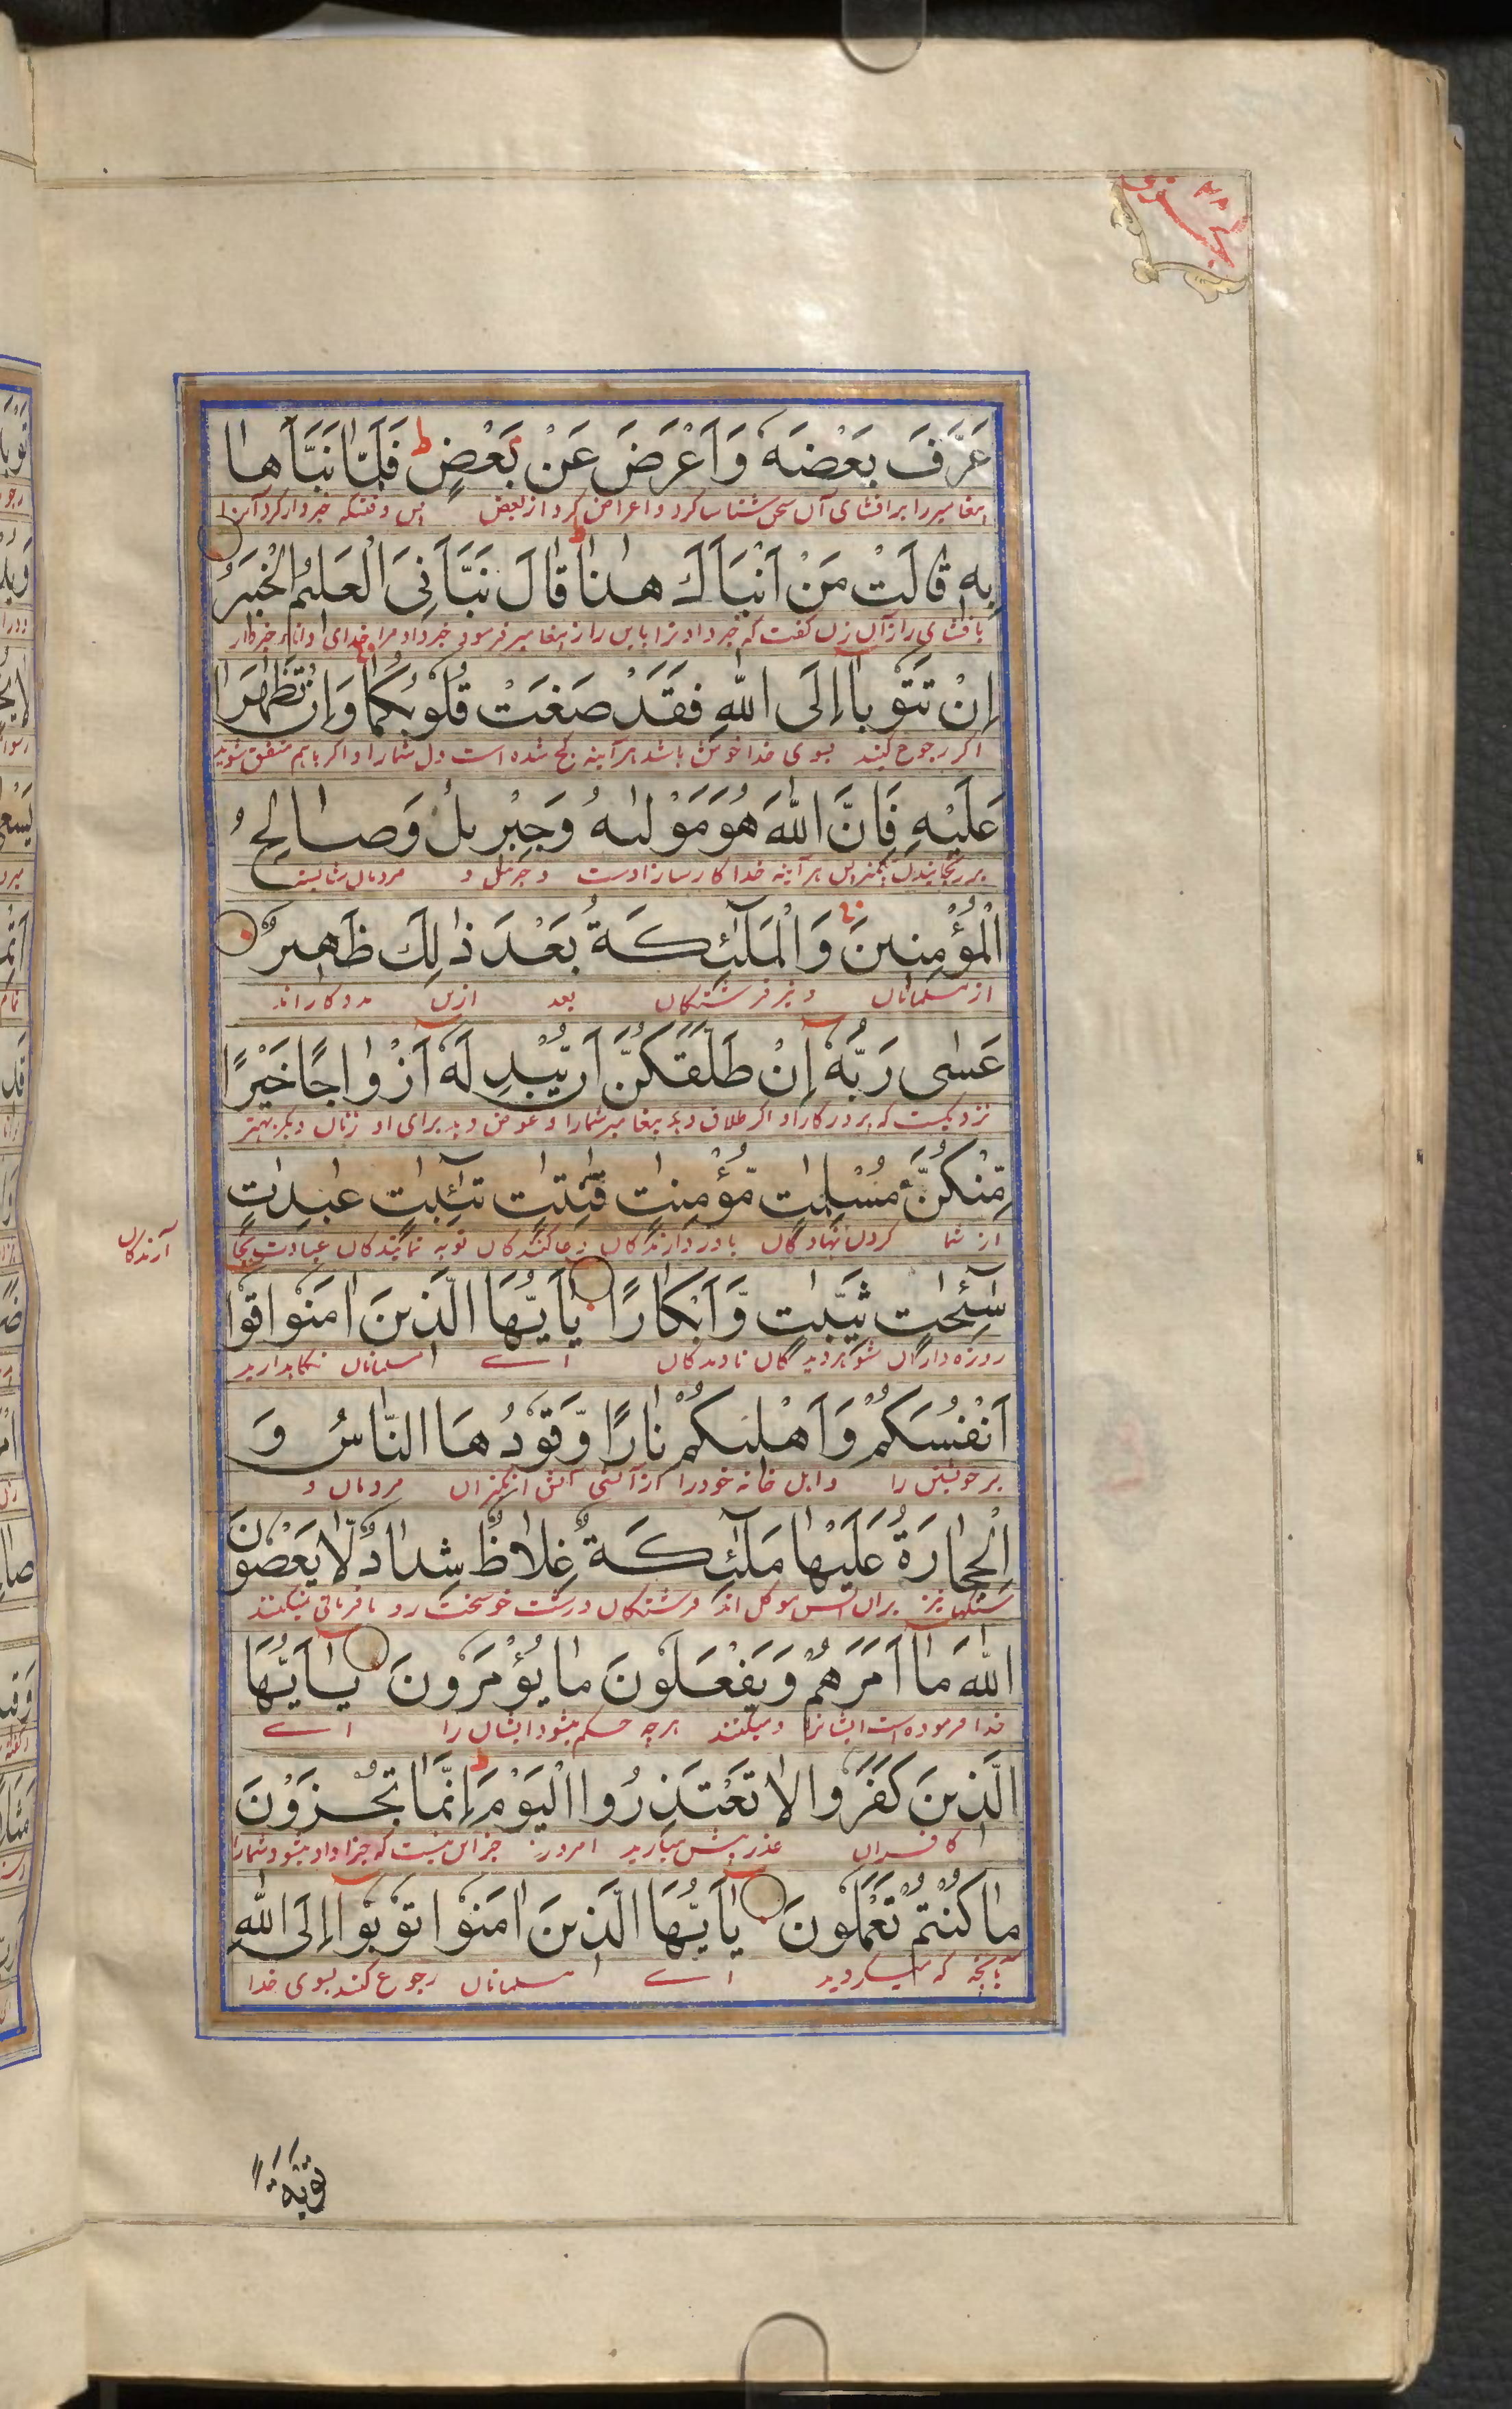 جزو ۲۸
عَرَّفَ بَعْضَهٗ وَاَعْرَضَ عَنْ بَعْضٍ ط فَلَمّٰا نَبَّاَهٰا
پیغامبر را بر افشای آن سخن شناسا کرد و اعراض کرد از بعض پس وقتیکه خبردار کرد آن زن را
بِهٖ قٰالَتْ مَنْ اَنْبَاَكَ هٰذٰا ط قٰالَ نَبَّاَنِىَ الْعَلِيْمُ الْخَبِيْرُ
بافشای راز آن زن گفت که خبر داد ترا باین راز پیغامبر فرمود خبر داد مرا خدای دانا و خبردار
اِنْ تَتُوْبٰا اِلَى اللّٰهِ فَقَدْ صَغَتْ قُلُوْبُكُمٰا وَاِنْ تَظٰهَرٰا
اگر رجوع کنید بسوی خدا خوش باشد هر آینه کج شده است دل شما را و اگر باهم متفق شوید
عَلَيْهِ فَاِنَّ اللّٰهَ هُوَ مَوْلٰىهُ وَجِبْرِيْلُ وَصٰالِحُ
بر رنجانیدن پیغمبر پس هر آینه خدا کارساز اوست و جبرئیل و مردمان شایسته
الْمُؤْمِنِيْنَ وَالْمَلٰٓئِكَةُ بَعْدَ ذٰلِكَ ظَهِيْرٌ
از مسلمانان و نیز فرشتگان بعد ازین مددکار اند
عَسٰى رَبُّهٗٓ اِنْ طَلَّقَكُنَّ اَنْ يُّبْدِلَهٗٓ اَزْوٰاجًا خَيْرًا
نزدیکست که پروردگار او اگر طلاق دهد پیغامبر شمارا عوض دهد برای او زنان دیگر بهتر
مِّنْكُنَّ مُسْلِمٰتٍ مُّؤْمِنٰتٍ قٰنِتٰتٍ تٰٓئِبٰتٍ عٰبِدٰتٍ
از شما گردن نهادگان باور دارندگان دعا کنندگان توبه نمایندگان عبادت بجا
آرندگان
سٰٓئِحٰتٍ ثَيِّبٰتٍ وَّاَبْكٰارًا يٰٓاَيُّهَا الَّذِيْنَ اٰمَنُوْا قُوْٓا
روزه داران شوهر دیدگان نادیدگان اے مسلمانان نگاهدارید
اَنْفُسَكُمْ وَاَهْلِيْكُمْ نٰارًا وَّقُوْدُهَا النّٰاسُ وَ
بر خویشتن را و اهل خانه خود را از آتشی آتش انگیز آن مردمان و
الْحِجٰارَةُ عَلَيْهٰا مَلٰٓئِكَةٌ غِلٰاظٌ شِدٰادٌ لٰا يَعْصُوْنَ
سنگها نیز بران آتش موکل اند فرشتگان درشت خو سخت رو نافرمانی نمیکنند
اللّٰهَ مٰٓا اَمَرَهُمْ وَيَفْعَلُوْنَ مٰا يُؤْمَرُوْنَ يٰٓاَيُّهَا
خدا فرموده است ایشانرا و میکنند هرچه حکم میشود ایشان را اے
الَّذِيْنَ كَفَرُوْا لٰا تَعْتَذِرُوا الْيَوْمَ ط اِنَّمٰا تُجْزَوْنَ
کافران عذر پیش میآرید امروز جز این نیست که جزا داد میشود شمارا
مٰا كُنْتُمْ تَعْمَلُوْنَ يٰٓاَيُّهَا الَّذِيْنَ اٰمَنُوْا تُوْبُوْٓا اِلَى اللّٰهِ
بآنچه که میکردید اے مسلمانان رجوع کنید بسوی خدا
تَوْبَةً